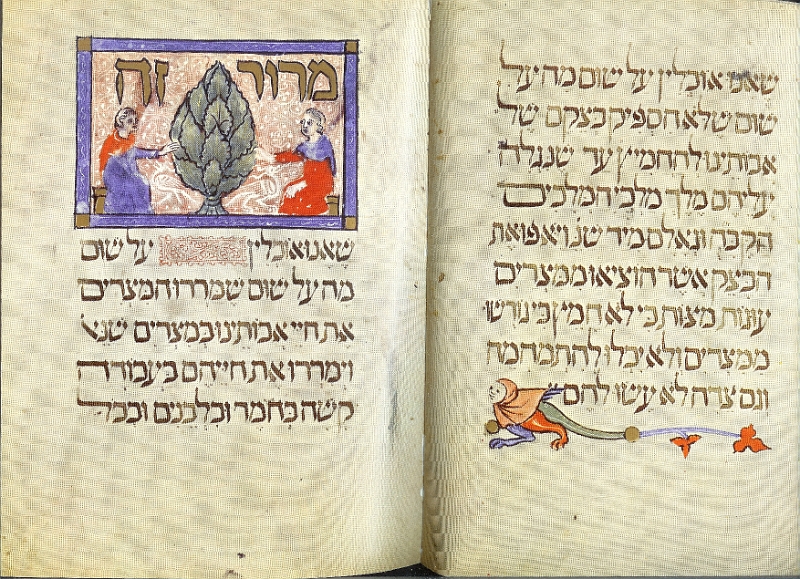 שאנו אוכלין על שום מה על
שום שלא הספיק בצקם של
אבותינו להחמיץ עד שנגלה
עליהם מלך מלכי המלכים
הקבה וגאלם מיד שנ ויאפו את
הבצק אשר הוציאו ממצרים
עוגות מצות כי לא חמץ כי גורשו
ממצרים ולא יכלו להתמהמה
וגם צדה לא עשו להם
מרור זה
שאנו אוכלין על שום
מה על שום שמררו המצרים
את חיי אבותינו במצרים שנא
וימררו את חייהם בעבודה
קשה בחמר ובלבנים ובכל